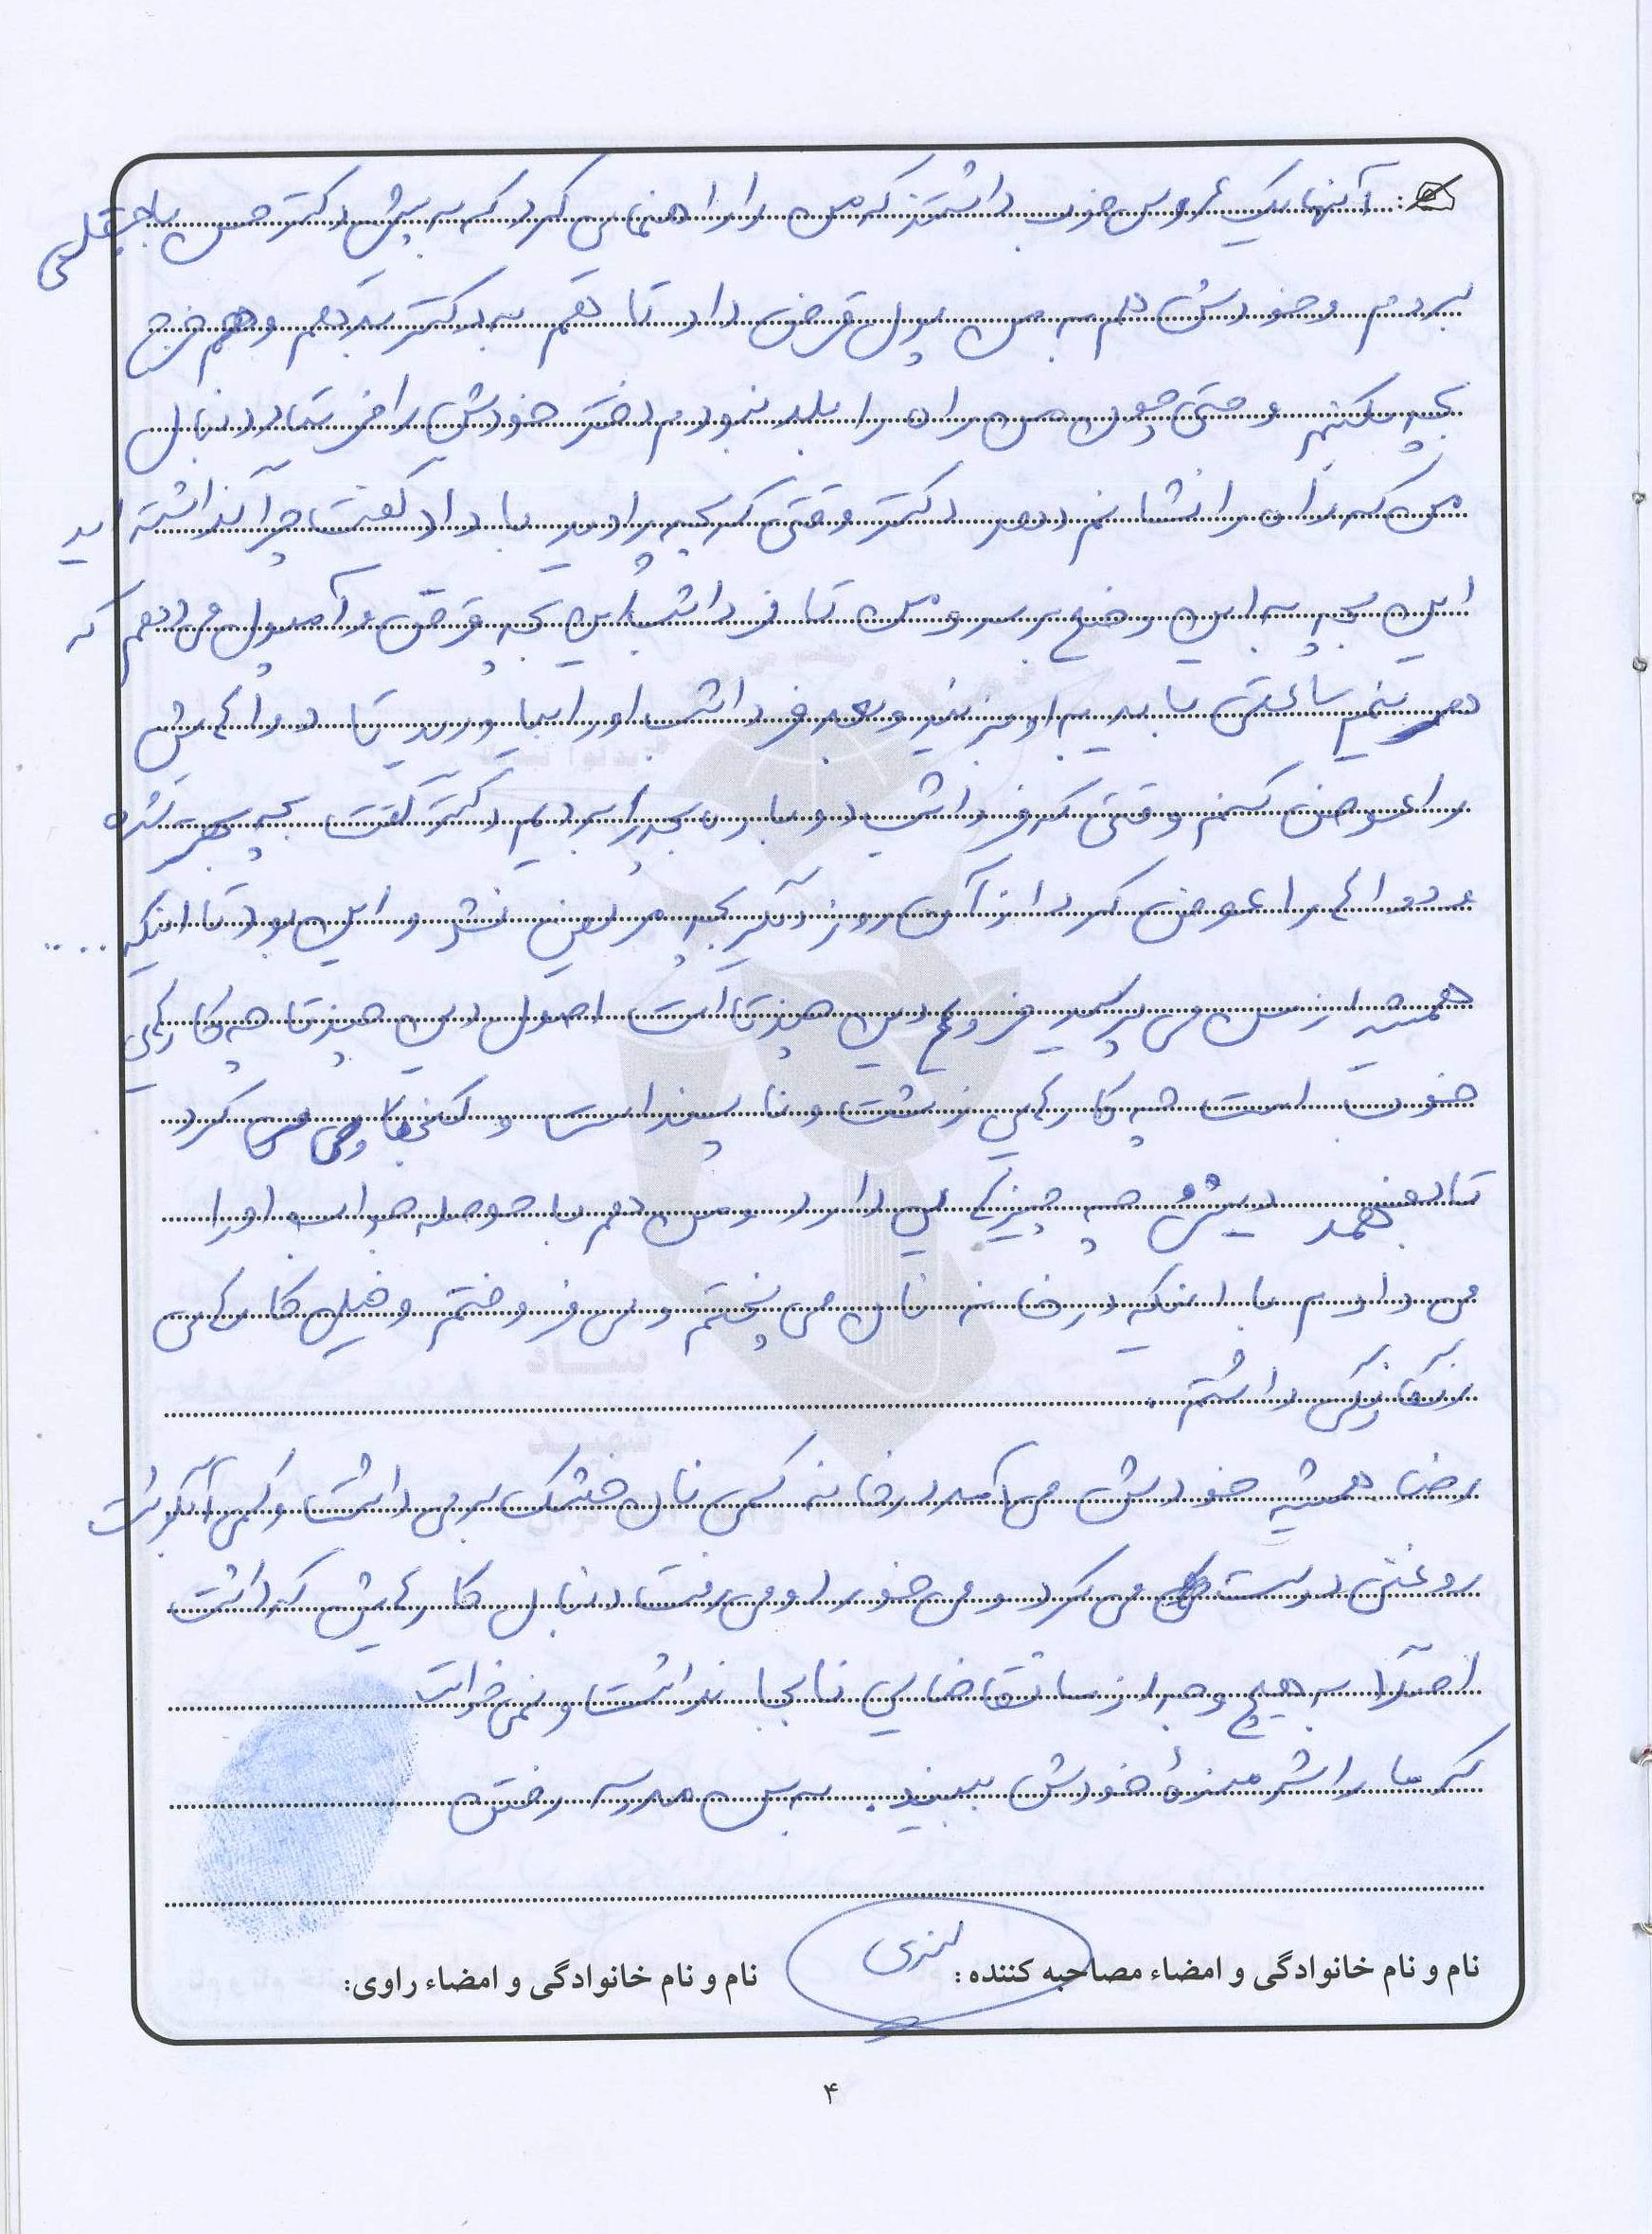 آنها یک عروس خوب داشتند که من را راهنمایی کرد که به پیش دکتر حسن
بردم و خودش هم به من پول قرض داد تا هم به دکتر بدهم و هم خرج
بچه بکنم و حتی چون من راه را بلد نبودم دختر خودش را فرستاد دنبال
من که راه را نشانم دهد دکتر وقتی که بچه را دید با داد گفت چرا گذاشته اید
این بچه به این وضع برسد و من تا فردا شب این بچه قرص و آمپول می دهم که
هر نیم ساعتی باید به او بزنید و بعد فردا شب او را بیاورید تا دواهایش
را عوض کنم وقتی که فردا شب دوباره بچه را بردیم دکتر گفت بچه بهتر شده
و دواها را عوض کرد از آن روز دیگر بچه مریض نشد و این بود تا اینکه ....
همیشه از من می پرسید فروع دین چند تا است اصول دین چند تا چه کارهایی
خوب است چه کارهایی زشت و ناپسند است و کنجکاوی می کرد
تا بفهمد دینش چه چیزهایی دارد و من هم با حوصله جواب او را
می دادم با اینکه در خانه نان می پختم و می فروختم و خیلی کارهای
رنگارنگی داشتم .
رضا همیشه خودش می آمد در خانه کمی نان خشک بر می داشت و کمی آبگوشت
روغنی درست می کرد و می خورد و می رفت دنبال کارهایش که داشت
اصلاً به هیچ وجه از ما تقاضایی نابجا نداشت و نمی خواست
که ما را شرمندهٔ خودش ببیند . به سن مدرسه رفتن
نام و نام خانوادگی و امضاء مصاحبه کننده:
نام و نام خانوادگی و امضاء راوی:
۴